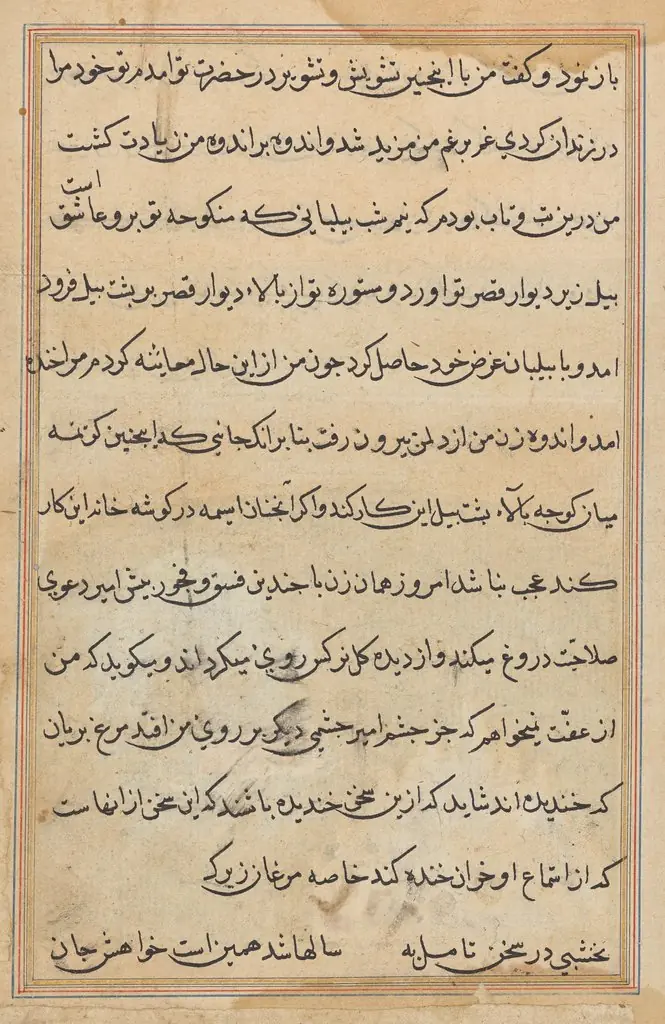 باز نمود و کفت من با اینجنین تشویش و تشویر در حضرت تو امدم تو خود مرا
در زندان کردي غم بر غم من مزید شد و اندوه بر اندوه من زیادت کشت
من درین تب و تاب بودم که نیم شب بیلبانی که منکوحه تو برو عاشق است
بیل زیر دیوار قصر تو اورد و مستوره تو از بالاء دیوار قصر بر بشت بیل فرود
امد و با بیلبان غرض خود حاصل کرد جون من از این حال معاینه کردم مرا خنده
امد و اندوه زن من از دل من بیرون رفت بنا بر انک جانبی که اینجنین کرنمه
میان کوجه بالاء بشت بیل این کار کند و اکر انجنان اسیمه در کوشه خانه این کار
کند عجب نباشد امروز همان زن با جندین فسق و فجور بیش امیر دعوي
صلاحیت دروغ میکند و از دیده کل نرکس روي میکرداند و میکوید که من
از عفّت نمیخواهم که جز جشم امیر جشمی دیکر بر روي من افتد مرغ بریان
که خندیده اند شاید که ازین سخن خندیده باشند که این سخن از انهاست
که از استماع او خران خنده کند خاصه مرغان زیرک
نخشبی در سخن تامل به سالها شد همین است خواهش جان